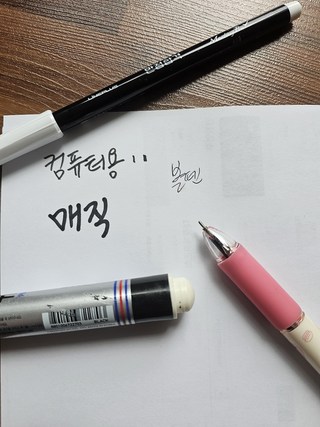 컴퓨터용 ''
볼펜
매직
BLACK